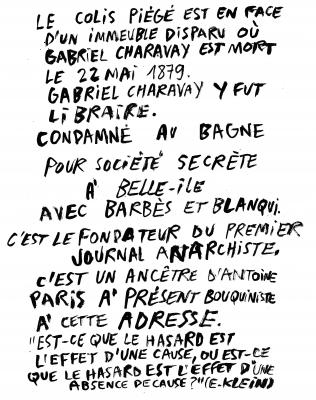 LE COLIS PIÉGÉ EST EN FACE
D'UN IMMEUBLE DISPARU OÙ
GABRIEL CHARAVAY EST MORT
LE 22 MAI 1879.
GABRIEL CHARAVAY Y FUT
LIBRAIRE.
CONDAMNÉ AU BAGNE
POUR SOCIÉTÉ SECRÈTE
A' BELLE-ÎLE
AVEC BARBÈS ET BLANQUI.
C'EST LE FONDATEUR DU PREMIER
JOURNAL ANARCHISTE.
C'EST UN ANCÊTRE D'ANTOINE
PARIS A' PRÉSENT BOUQUINISTE
A' CETTE ADRESSE.
"EST-CE QUE LE HASARD EST
L'EFFET D'UNE CAUSE, OU EST-CE
QUE LE HASARD EST L'EFFET D'UNE
ABSENCE DE CAUSE?" (E. KLEIN)